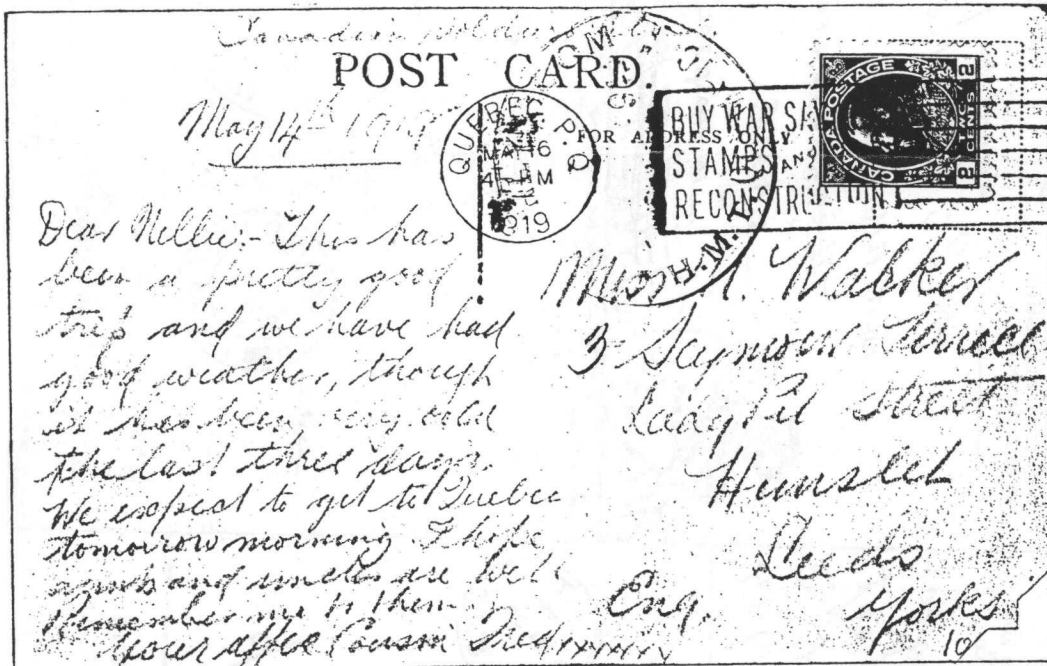 Canadian Soldiers
POST CARD.
May 14th 1919
QUEBEC P.Q.
MAY 16
4 PM
1919
FOR ADDRESS ONLY
BUY WAR SAV
STAMPS
RECONSTRUCTION
CANADA POSTAGE
2 CENTS 2
H.M.
Dear Nellie:- This has
been a pretty good
trip and we have had
good weather, though
it has been very cold
the last three days.
We expect to get to Quebec
tomorrow morning I hope
aunts and uncles are well
Remember me to them
Your affec Cousin Fred xxxxxx
Miss N. Walker
3 Seymour Terrace
Lady Pit Street
Hunslet
Leeds
Eng. Yorks
10